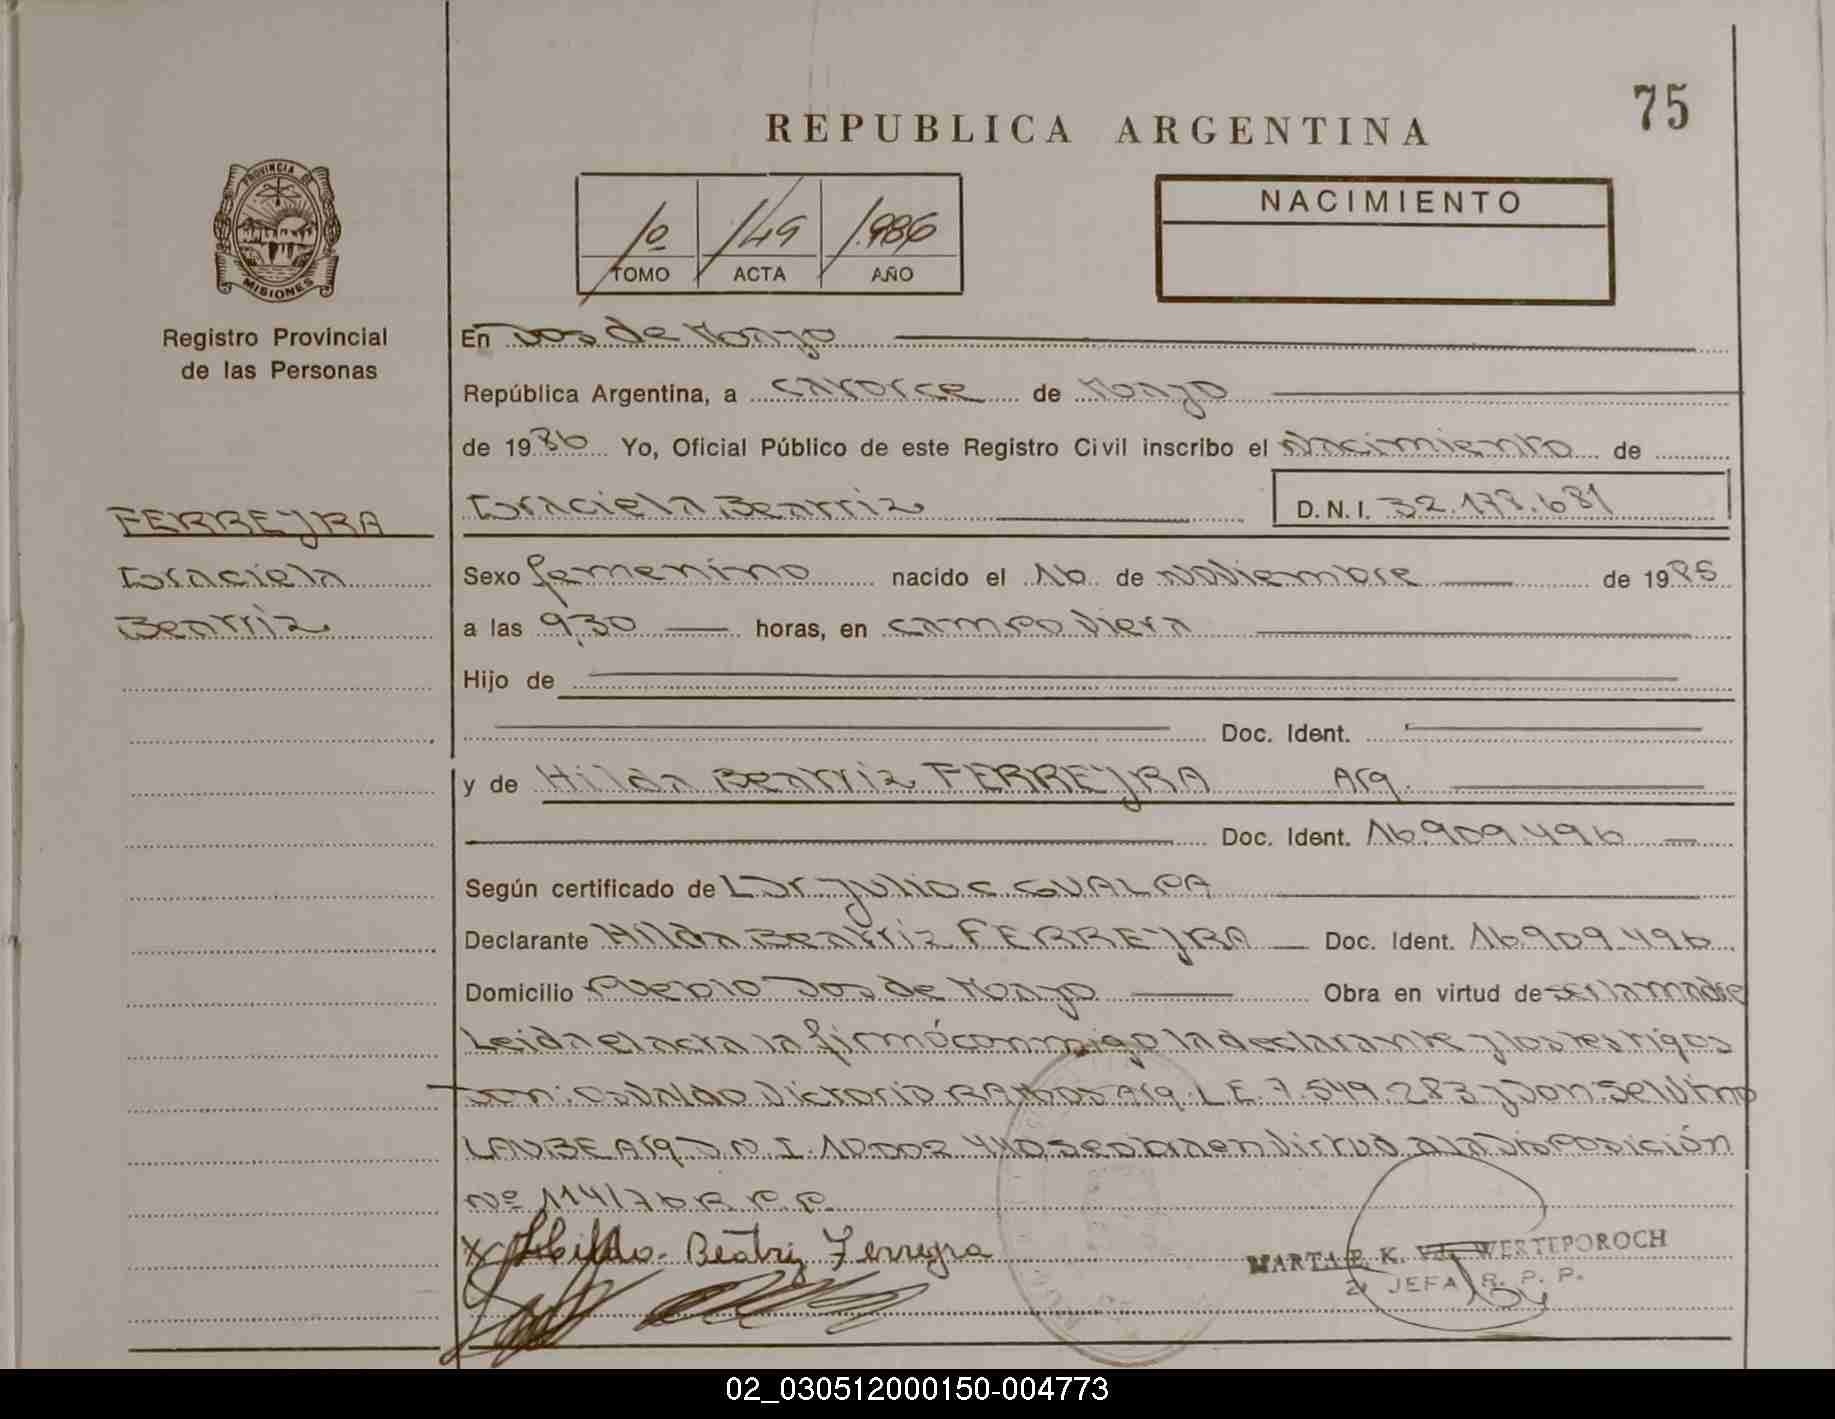 75
REPUBLICA ARGENTINA
PROVINCIA DE
MISIONES
1º 149 1.986
TOMO ACTA AÑO
NACIMIENTO
Registro Provincial
de las Personas
En Dos de Mayo
República Argentina, a catorce de Mayo
de 1986 Yo, Oficial Público de este Registro Civil inscribo el Nacimiento de
FERREYRA
Graciela
Beatriz
Graciela Beatriz D.N.I. 32.178.681
Sexo femenino nacido el 16 de Noviembre de 1985
a las 9,30 horas, en Campo Viera
Hijo de
Doc. Ident.
y de Hilda Beatriz FERREYRA Arg.
Doc. Ident. 16.909.496
Según certificado de Dr Julio C GUALPA
Declarante Hilda Beatriz FERREYRA Doc. Ident. 16.909.496
Domicilio Pueblo Dos de Mayo Obra en virtud de ser la madre
Leida el acta la firmó conmigo la declarante y los testigos
Don: Osvaldo Victorio RAMOS Arg. L.E. 7.549.283 y Don
LAUBE Arg D.N.I. 10.002.440 se labra en virtud a la Disposición
Nº 114/76 R.P.P.
X Hilda Beatriz Ferreyra
MARTA E. K. WERTEPOROCH
JEFA R. P. P.
02_030512000150-004773